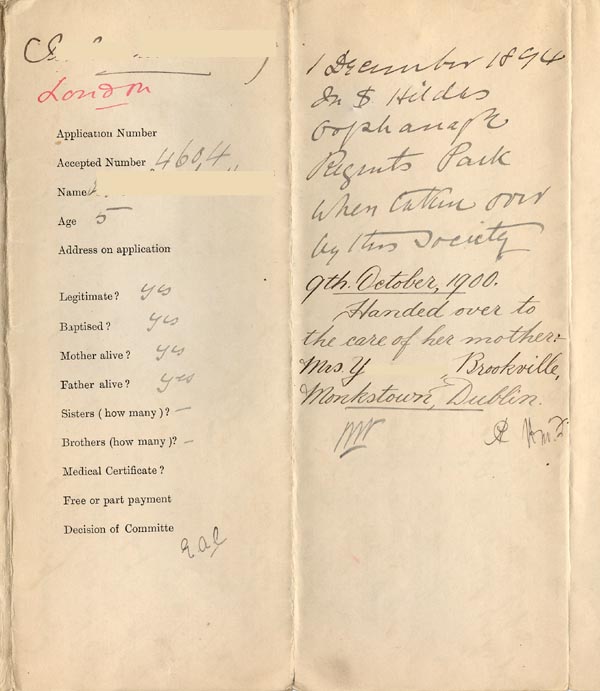 London
Application Number
Accepted Number 4604
Name
Age 5
Address on application
Legitimate? yes
Baptised? yes
Mother alive? yes
Father alive? yes
Sisters (how many)? —
Brothers (how many)? –
Medical Certificate?
Free or part payment
Decision of Committe
1 December 1894
In S. Hildas
Orphanage
Regents Park
when taken over
by this Society
9th. October, 1900.
Handed over to
the care of her mother:-
Mrs. Y , Brookville,
Monkstown, Dublin.